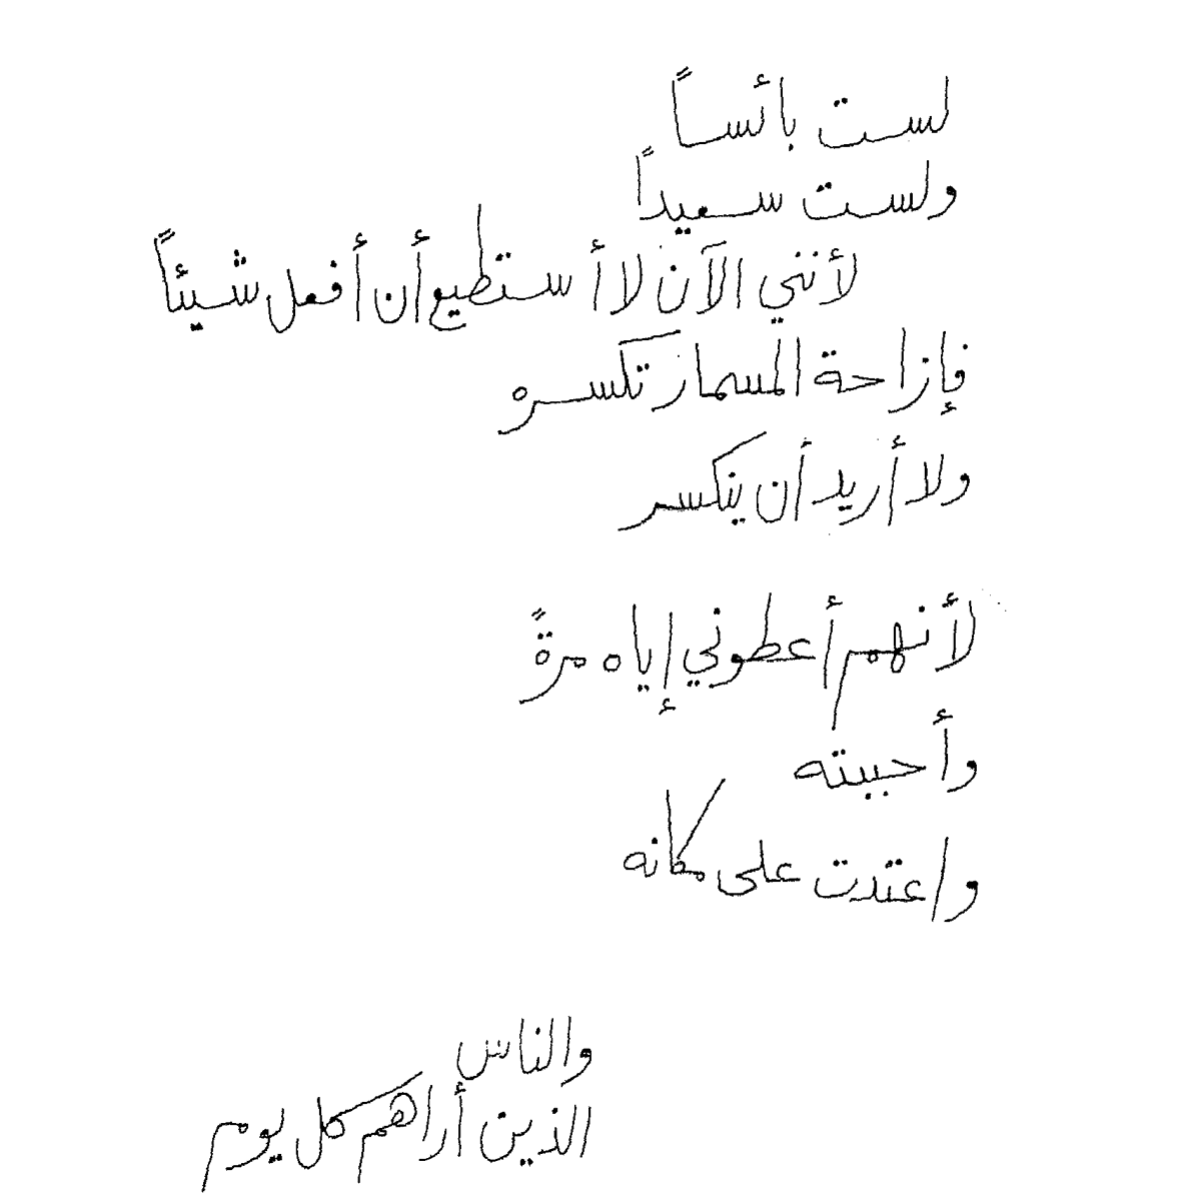 لست بائساً
ولست سعيداً
لأنني الآن لا أستطيع أن أفعل شيئاً
فإزاحة المسمار تكسره
ولا أريد أن ينكسر
لأنهم أعطوني إياه مرةً
وأحببته
واعتدت على مكانه
والناس
الذين أراهم كل يوم